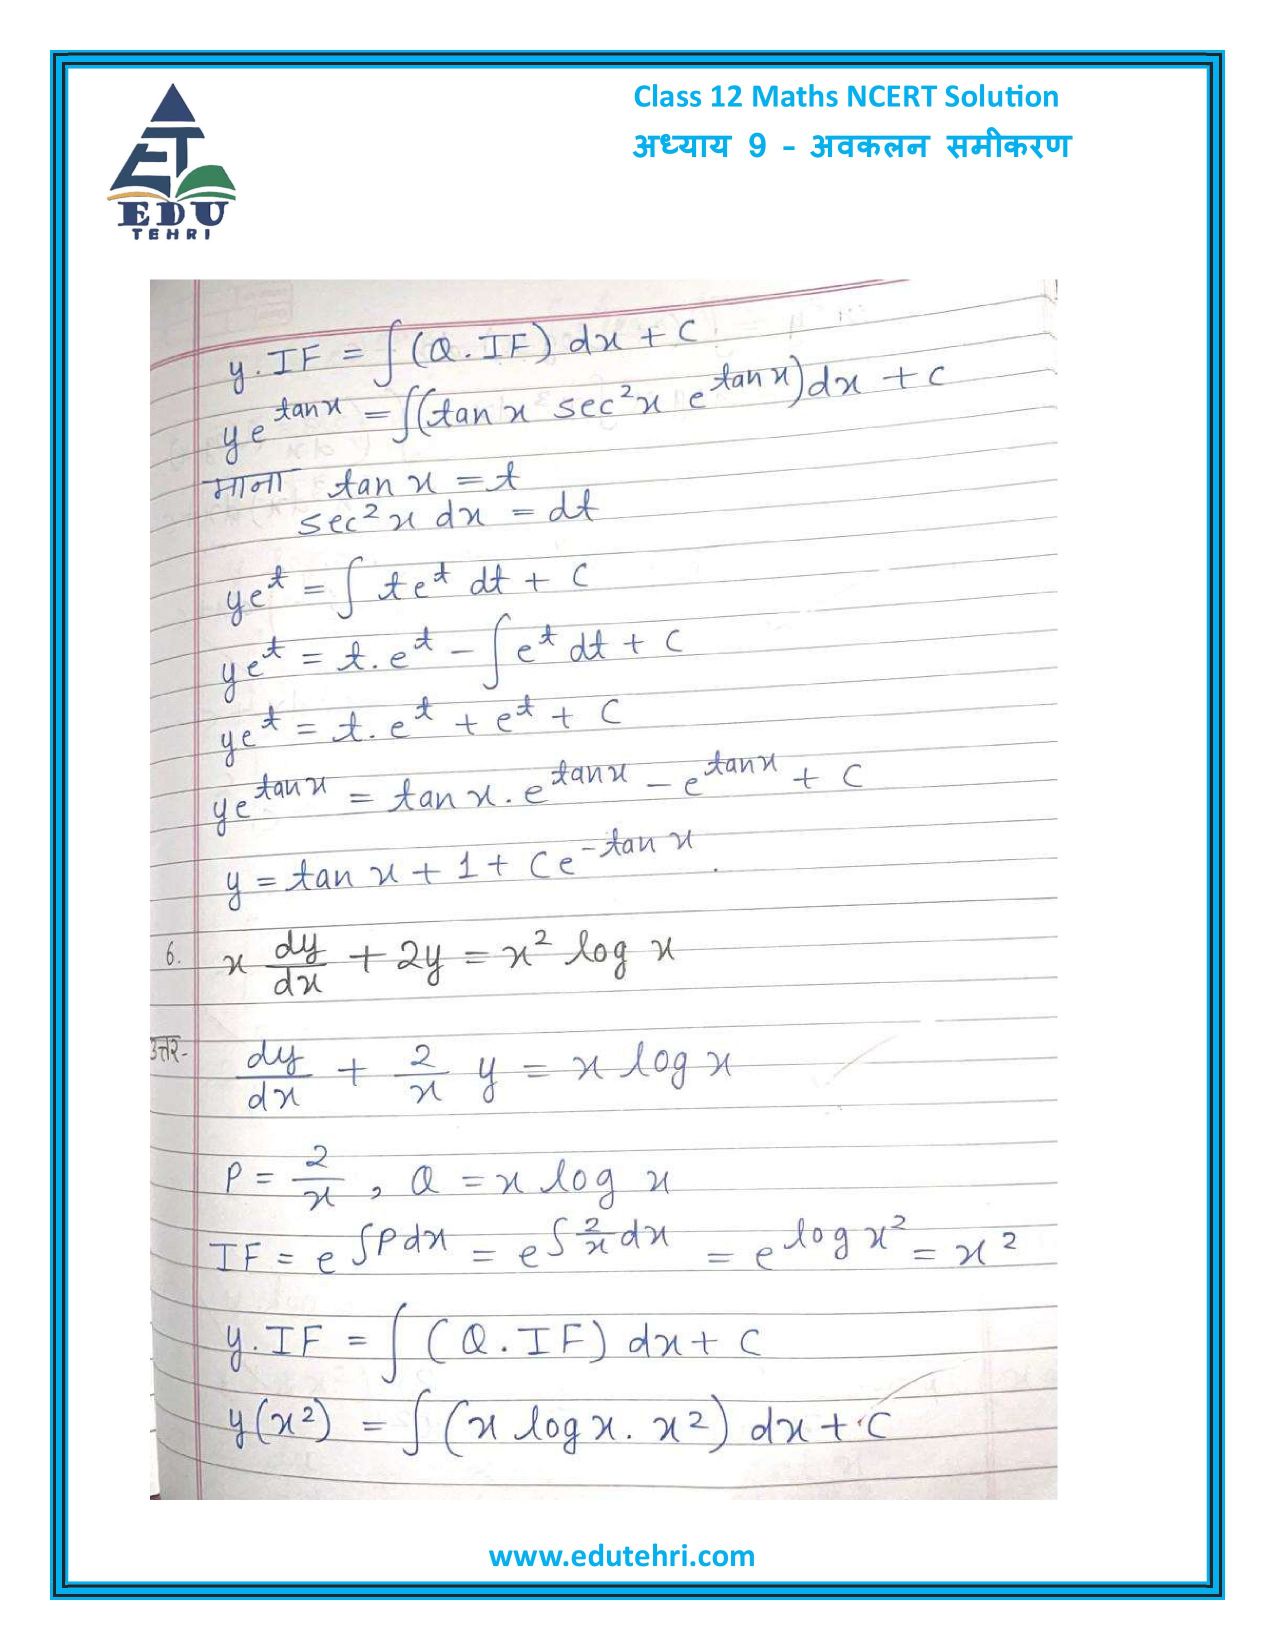 Class 12 Maths NCERT Solution
अध्याय 9 - अवकलन समीकरण
EDU
TEHRI
y.IF = ∫(Q.IF) dx + C
ye^{tan x} = ∫(tan x sec²x e^{tan x})dx + C
माना tan x = t
sec²x dx = dt
ye^t = ∫ te^t dt + C
ye^t = t.e^t - ∫e^t dt + C
ye^t = t.e^t + e^t + C
ye^{tan x} = tan x.e^{tan x} - e^{tan x} + C
y = tan x + 1 + Ce^{-tan x}.
6. x dy/dx + 2y = x² log x
उत्तर- dy/dx + 2/x y = x log x
P = 2/x, Q = x log x
IF = e^{∫Pdx} = e^{∫2/x dx} = e^{log x²} = x²
y.IF = ∫(Q.IF) dx + C
y(x²) = ∫(x log x. x²) dx + C
www.edutehri.com